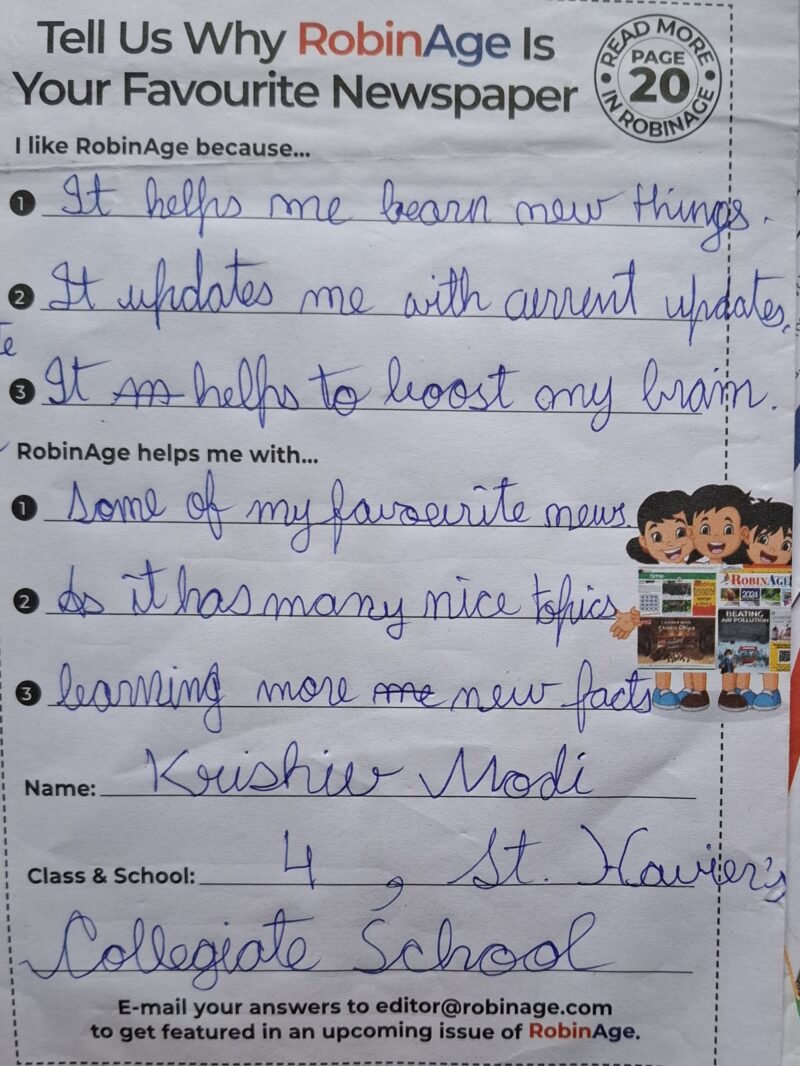 Tell Us Why RobinAge Is
Your Favourite Newspaper
READ MORE
PAGE
20
IN ROBINAGE
I like RobinAge because...
1 It helps me learn new things.
2 It updates me with current updates.
3 It helps to boost my brain.
RobinAge helps me with...
1 Some of my favourite news.
2 As it has many nice topics
3 learning more new facts
time
ROBINAGE
2024
BEATING
AIR POLLUTION
Name: Krishiv Modi
Class & School: 4, St. Xavier's
Collegiate School
E-mail your answers to editor@robinage.com
to get featured in an upcoming issue of RobinAge.